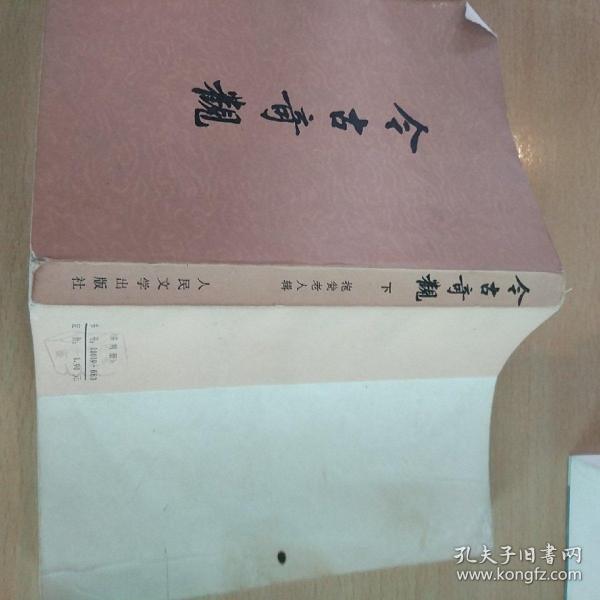 今古奇觀
今古奇觀
下
抱甕老人辑
人民文学出版社
书号: 10019·663
孔夫子旧书网
www.kongfz.com